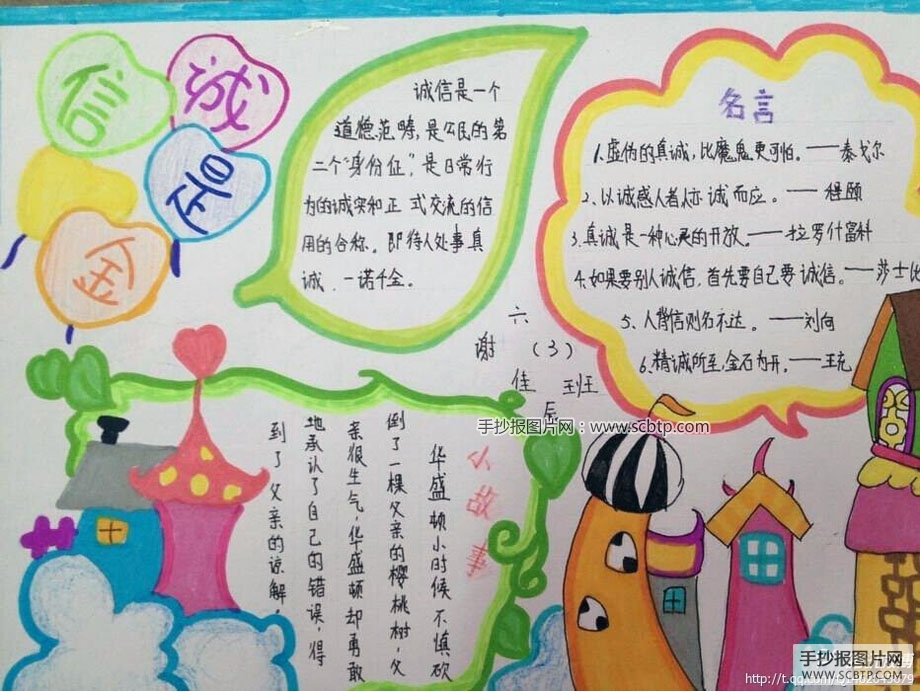 诚信是金
诚信是一个
道德范畴,是公民的第
二个“身份证”,是日常行
为的诚实和正式交流的信
用的合称。即待人处事真
诚、一诺千金。
名言
1.虚伪的真诚,比魔鬼更可怕。——泰戈尔
2、以诚感人者人亦诚而应。——程颐
3.真诚是一种心灵的开放。——拉罗什富科
4.如果要别人诚信,首先要自己要诚信。——莎士比
5、人背信则名不达。——刘向
6.精诚所至,金石为开。——王充
六(3)班
谢佳辰
手抄报图片网:www.scbtp.com
小故事
华盛顿小时候不慎砍
倒了一棵父亲的樱桃树,父
亲狠生气,华盛顿却勇敢
地承认了自己的错误,得
到了父亲的谅解。
手抄报图片网
WWW.SCBTP.COM